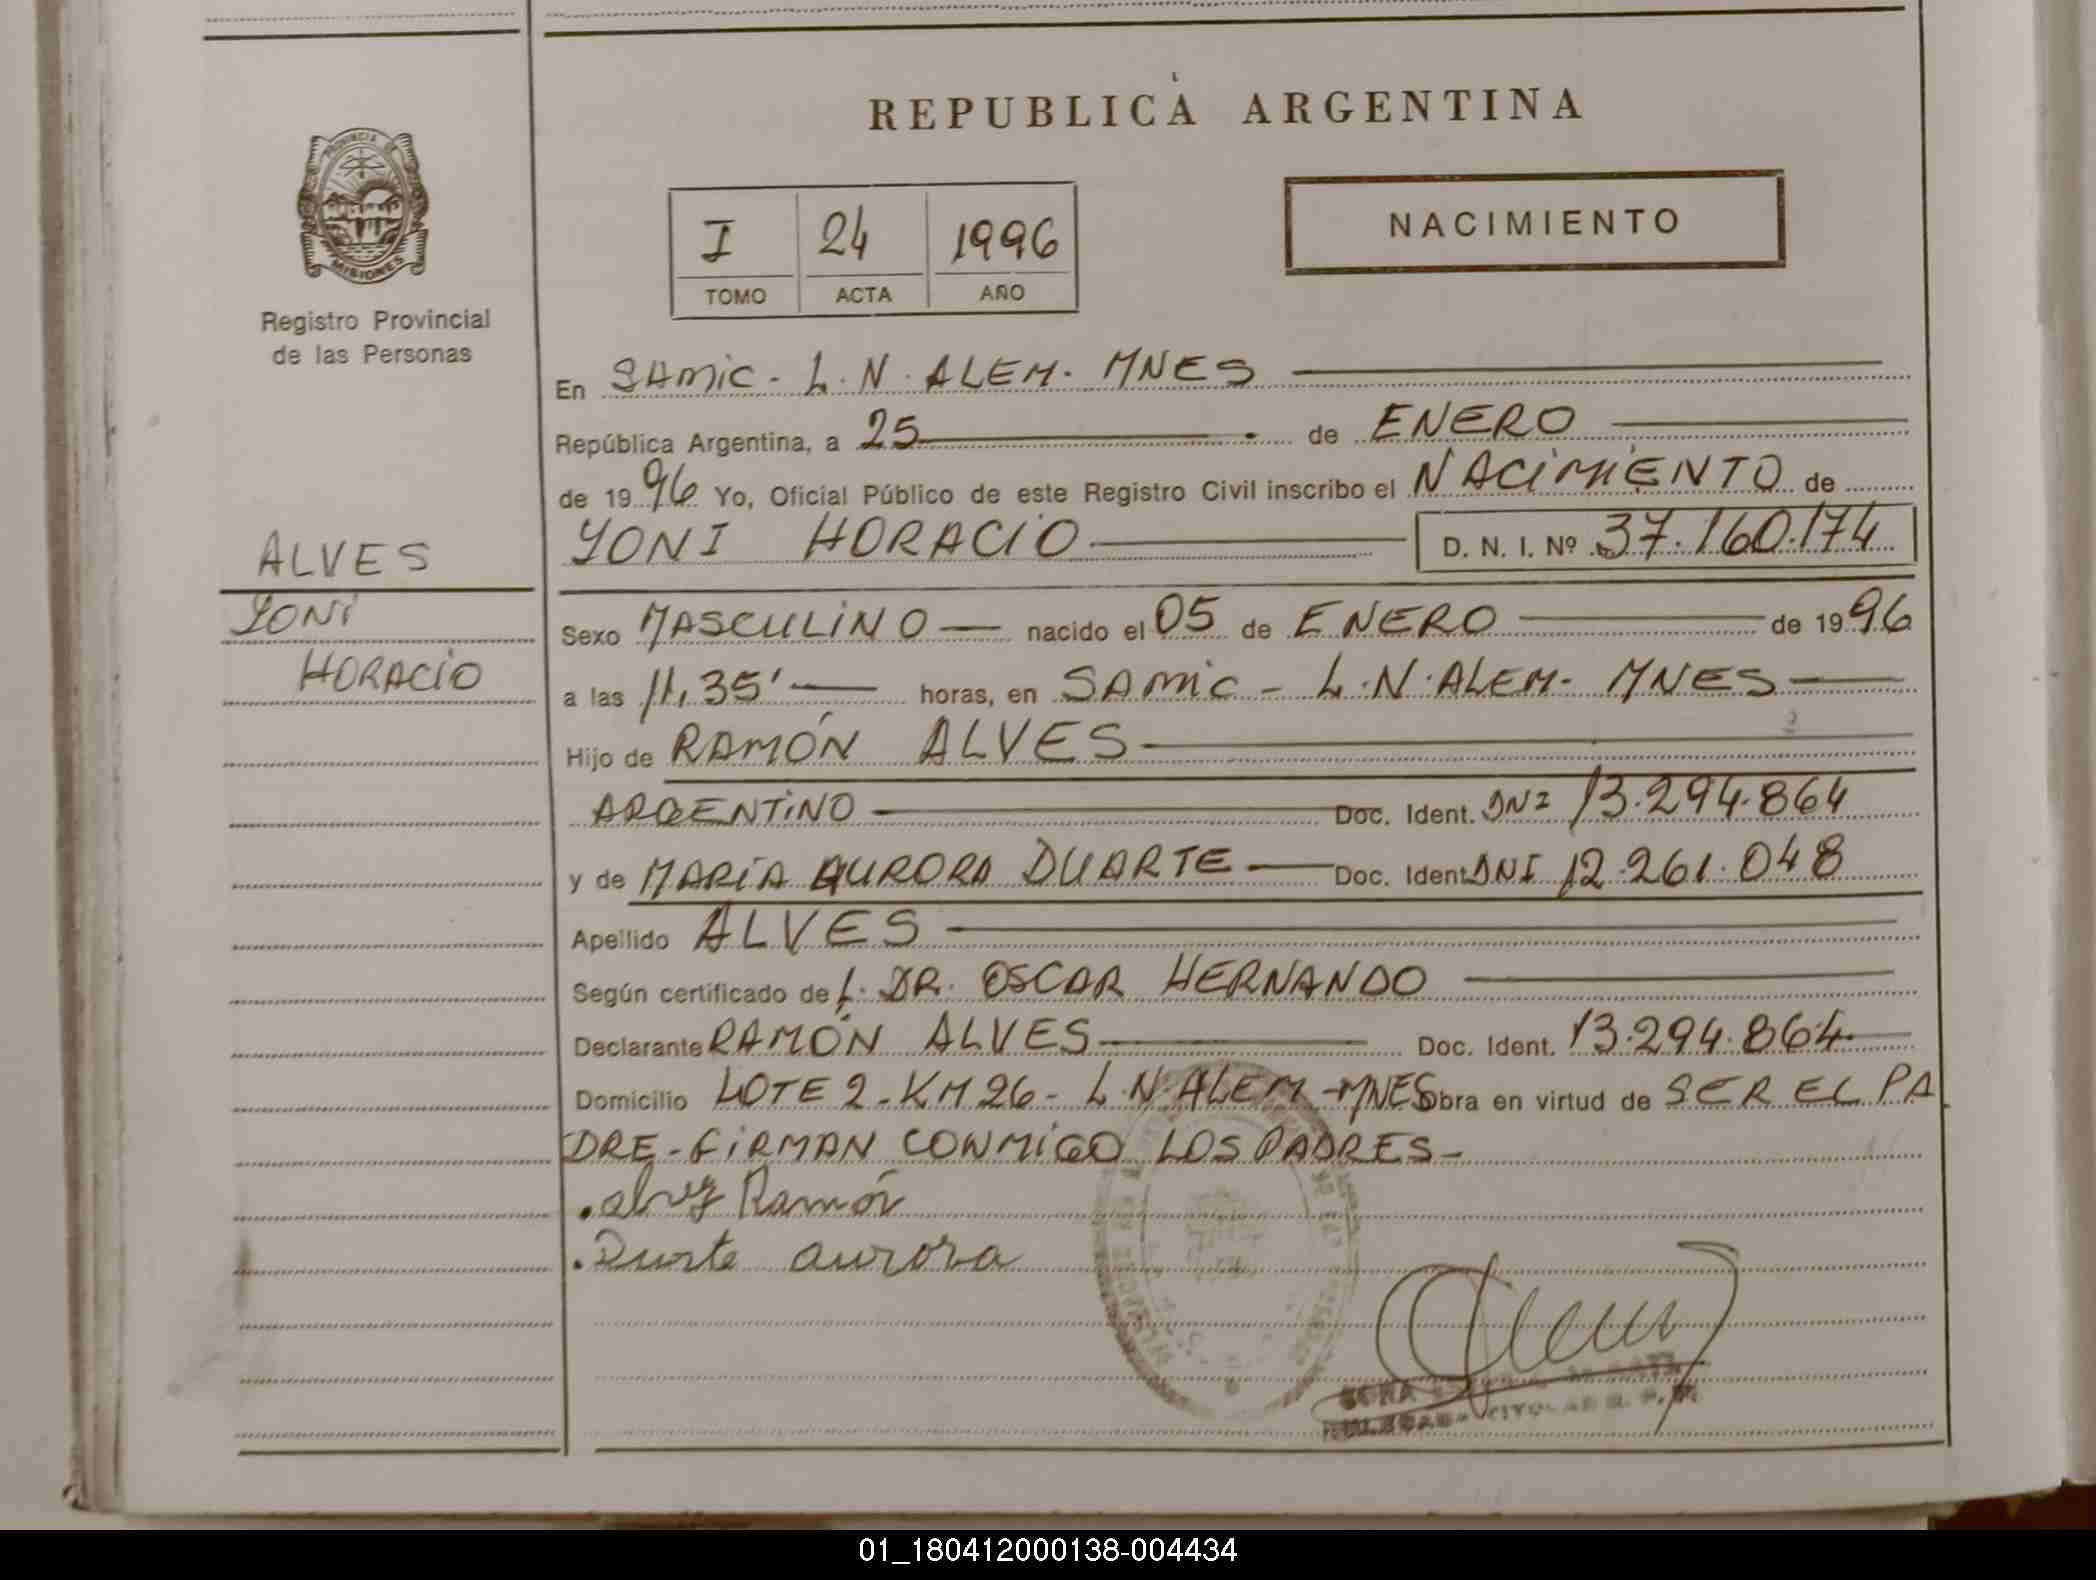 REPUBLICA ARGENTINA
PROVINCIA DE
MISIONES
Registro Provincial
de las Personas
I 24 1996
TOMO ACTA AÑO
NACIMIENTO
En SAMIC - L. N. ALEM - MNES
República Argentina, a 25 de ENERO
de 1996 Yo, Oficial Público de este Registro Civil inscribo el NACIMIENTO de
YONI HORACIO D. N. I. Nº 37.160.174
ALVES
YONI
HORACIO
Sexo MASCULINO nacido el 05 de ENERO de 1996
a las 11,35' horas, en SAMIC - L. N. ALEM - MNES
Hijo de RAMÓN ALVES
ARGENTINO Doc. Ident. DNI 13.294.864
y de MARÍA AURORA DUARTE Doc. Ident. DNI 12.261.048
Apellido ALVES
Según certificado de L. DR. OSCAR HERNANDO
Declarante RAMÓN ALVES Doc. Ident. 13.294.864
Domicilio LOTE 2 - KM 26 - L. N. ALEM - MNES Obra en virtud de SER EL PA
DRE - FIRMAN CONMIGO LOS PADRES -
Ramón
aurora
01_180412000138-004434